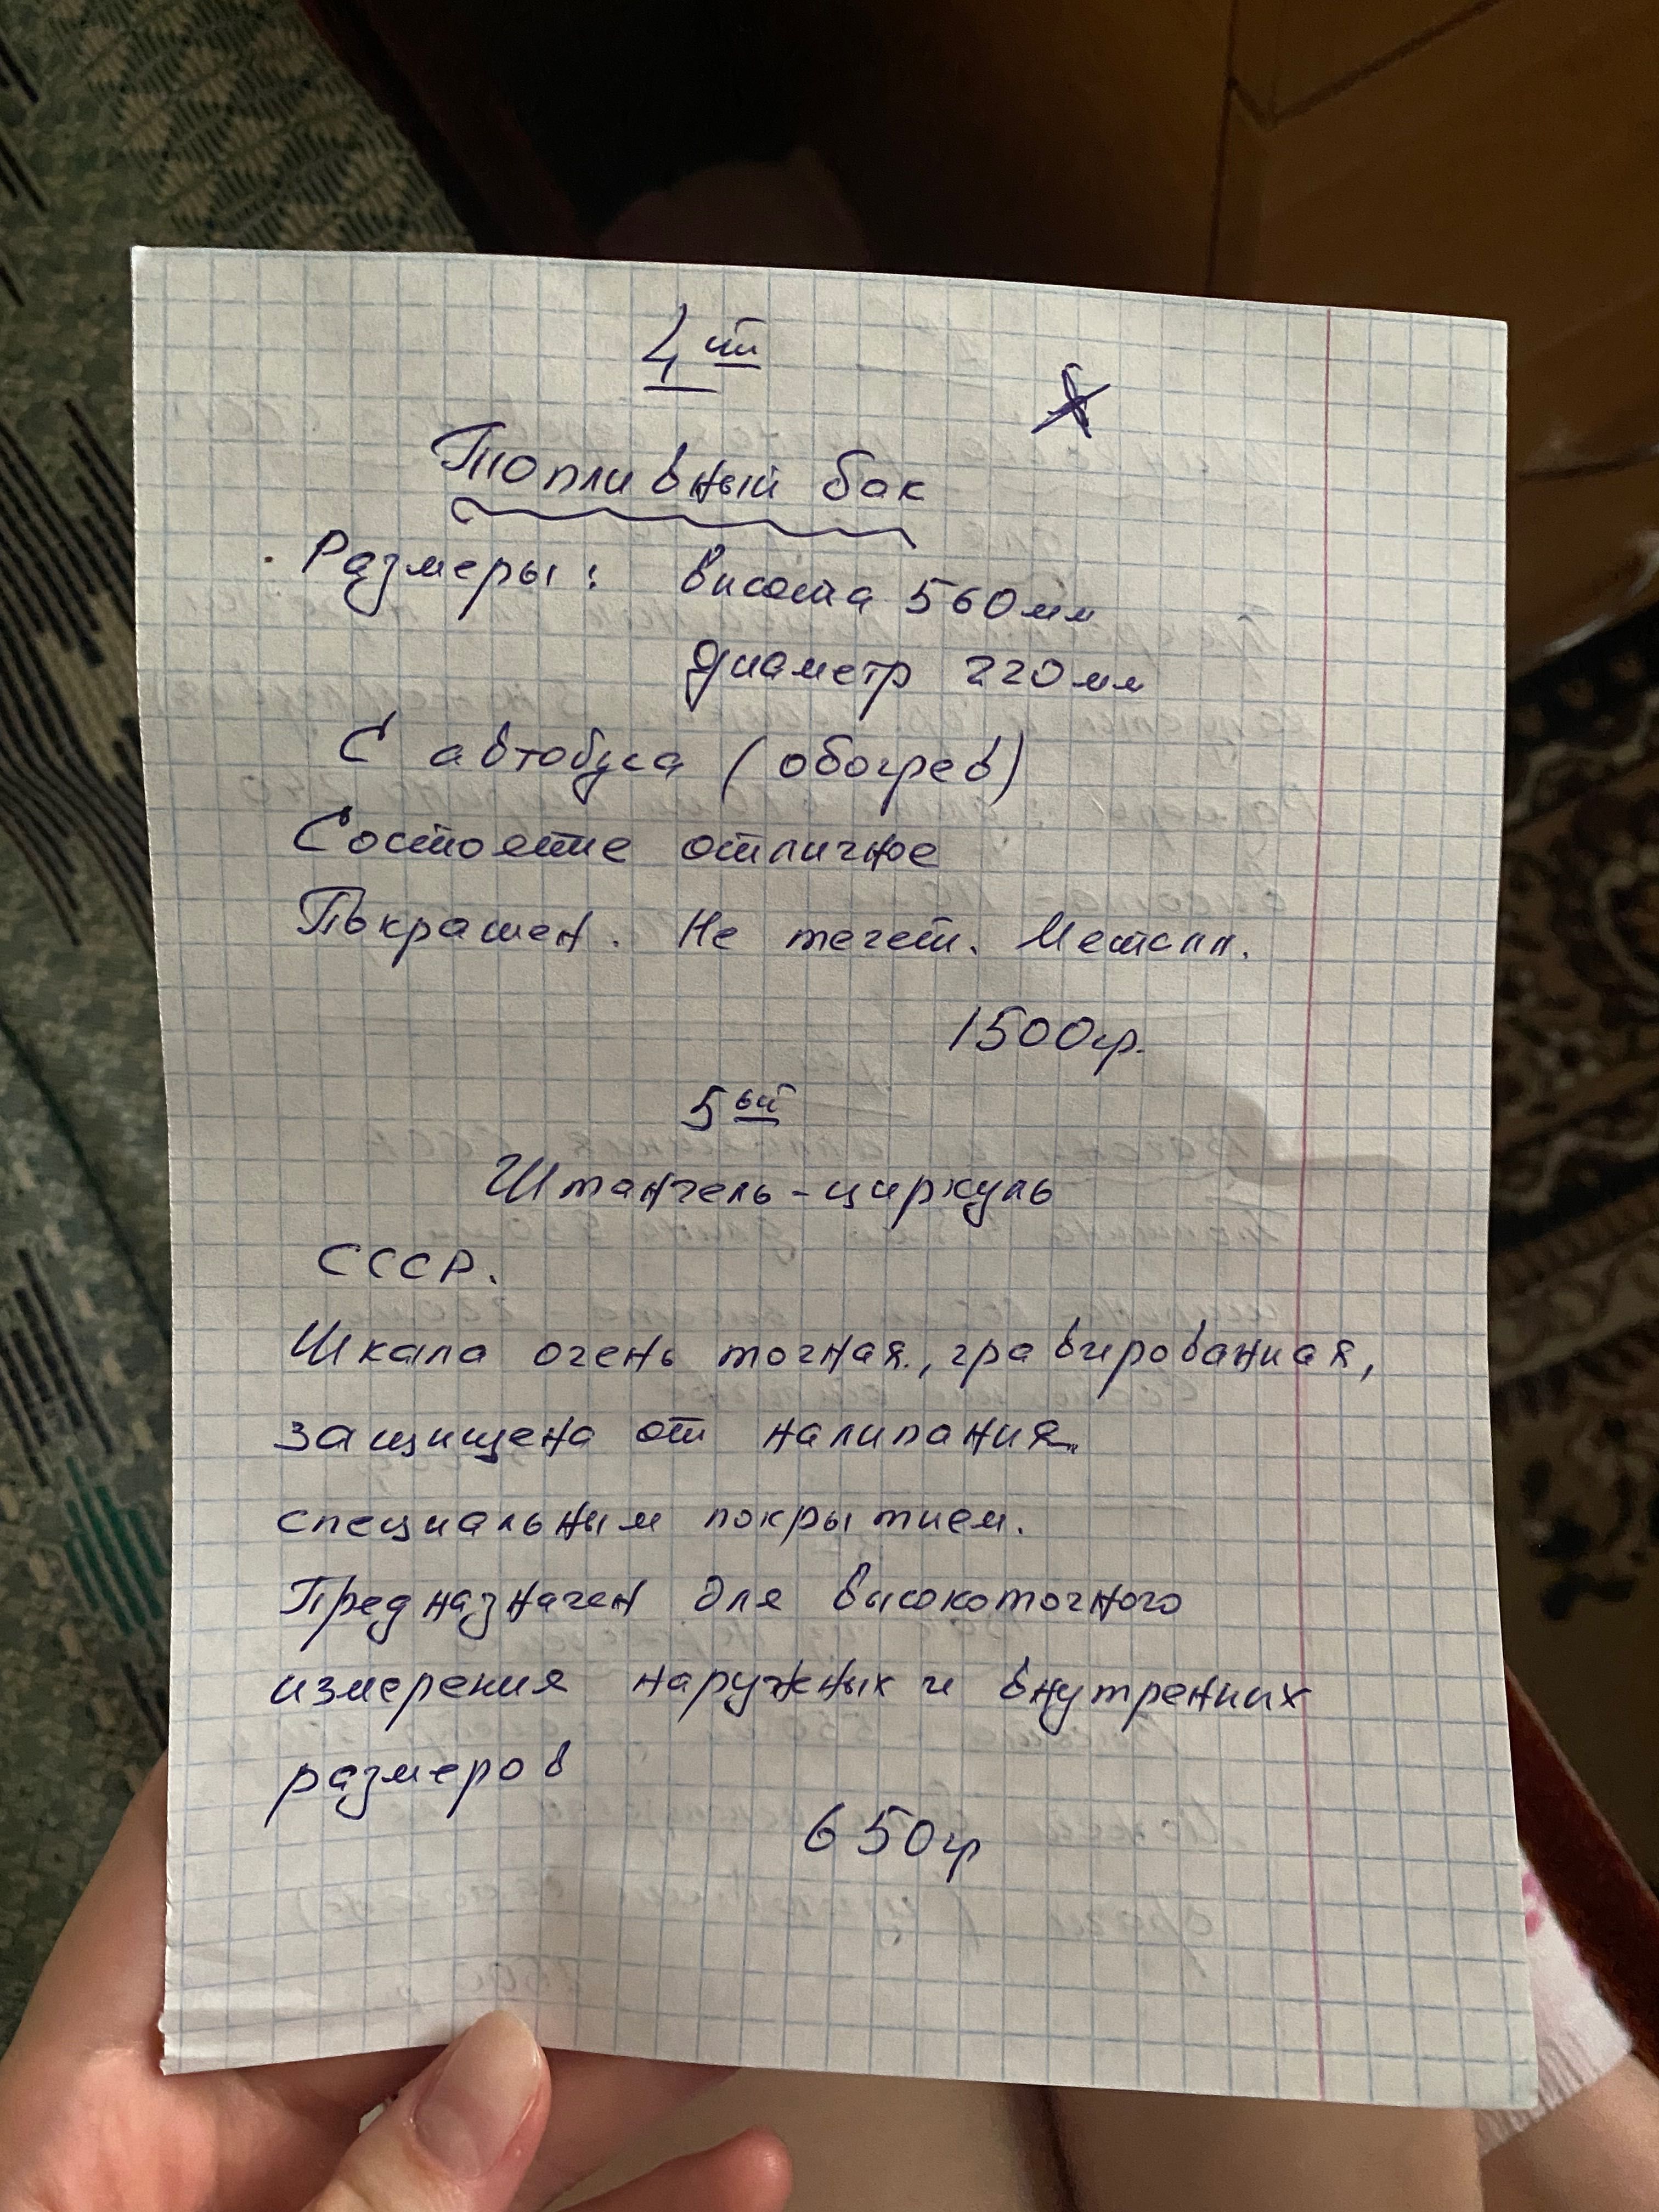 4ый
Топливный бак
Размеры: висота 560мм
диаметр 220мм
С автобуса (обогрев)
Состояние отличное
Покрашен. Не течет. Металл.
1500гр.
5ый
Штангель-циркуль
СССР.
Шкала очень точная, гравированная,
защищена от налипания
специальным покрытием.
Предназначен для высокоточного
измерения наружных и внутренних
размеров
650гр